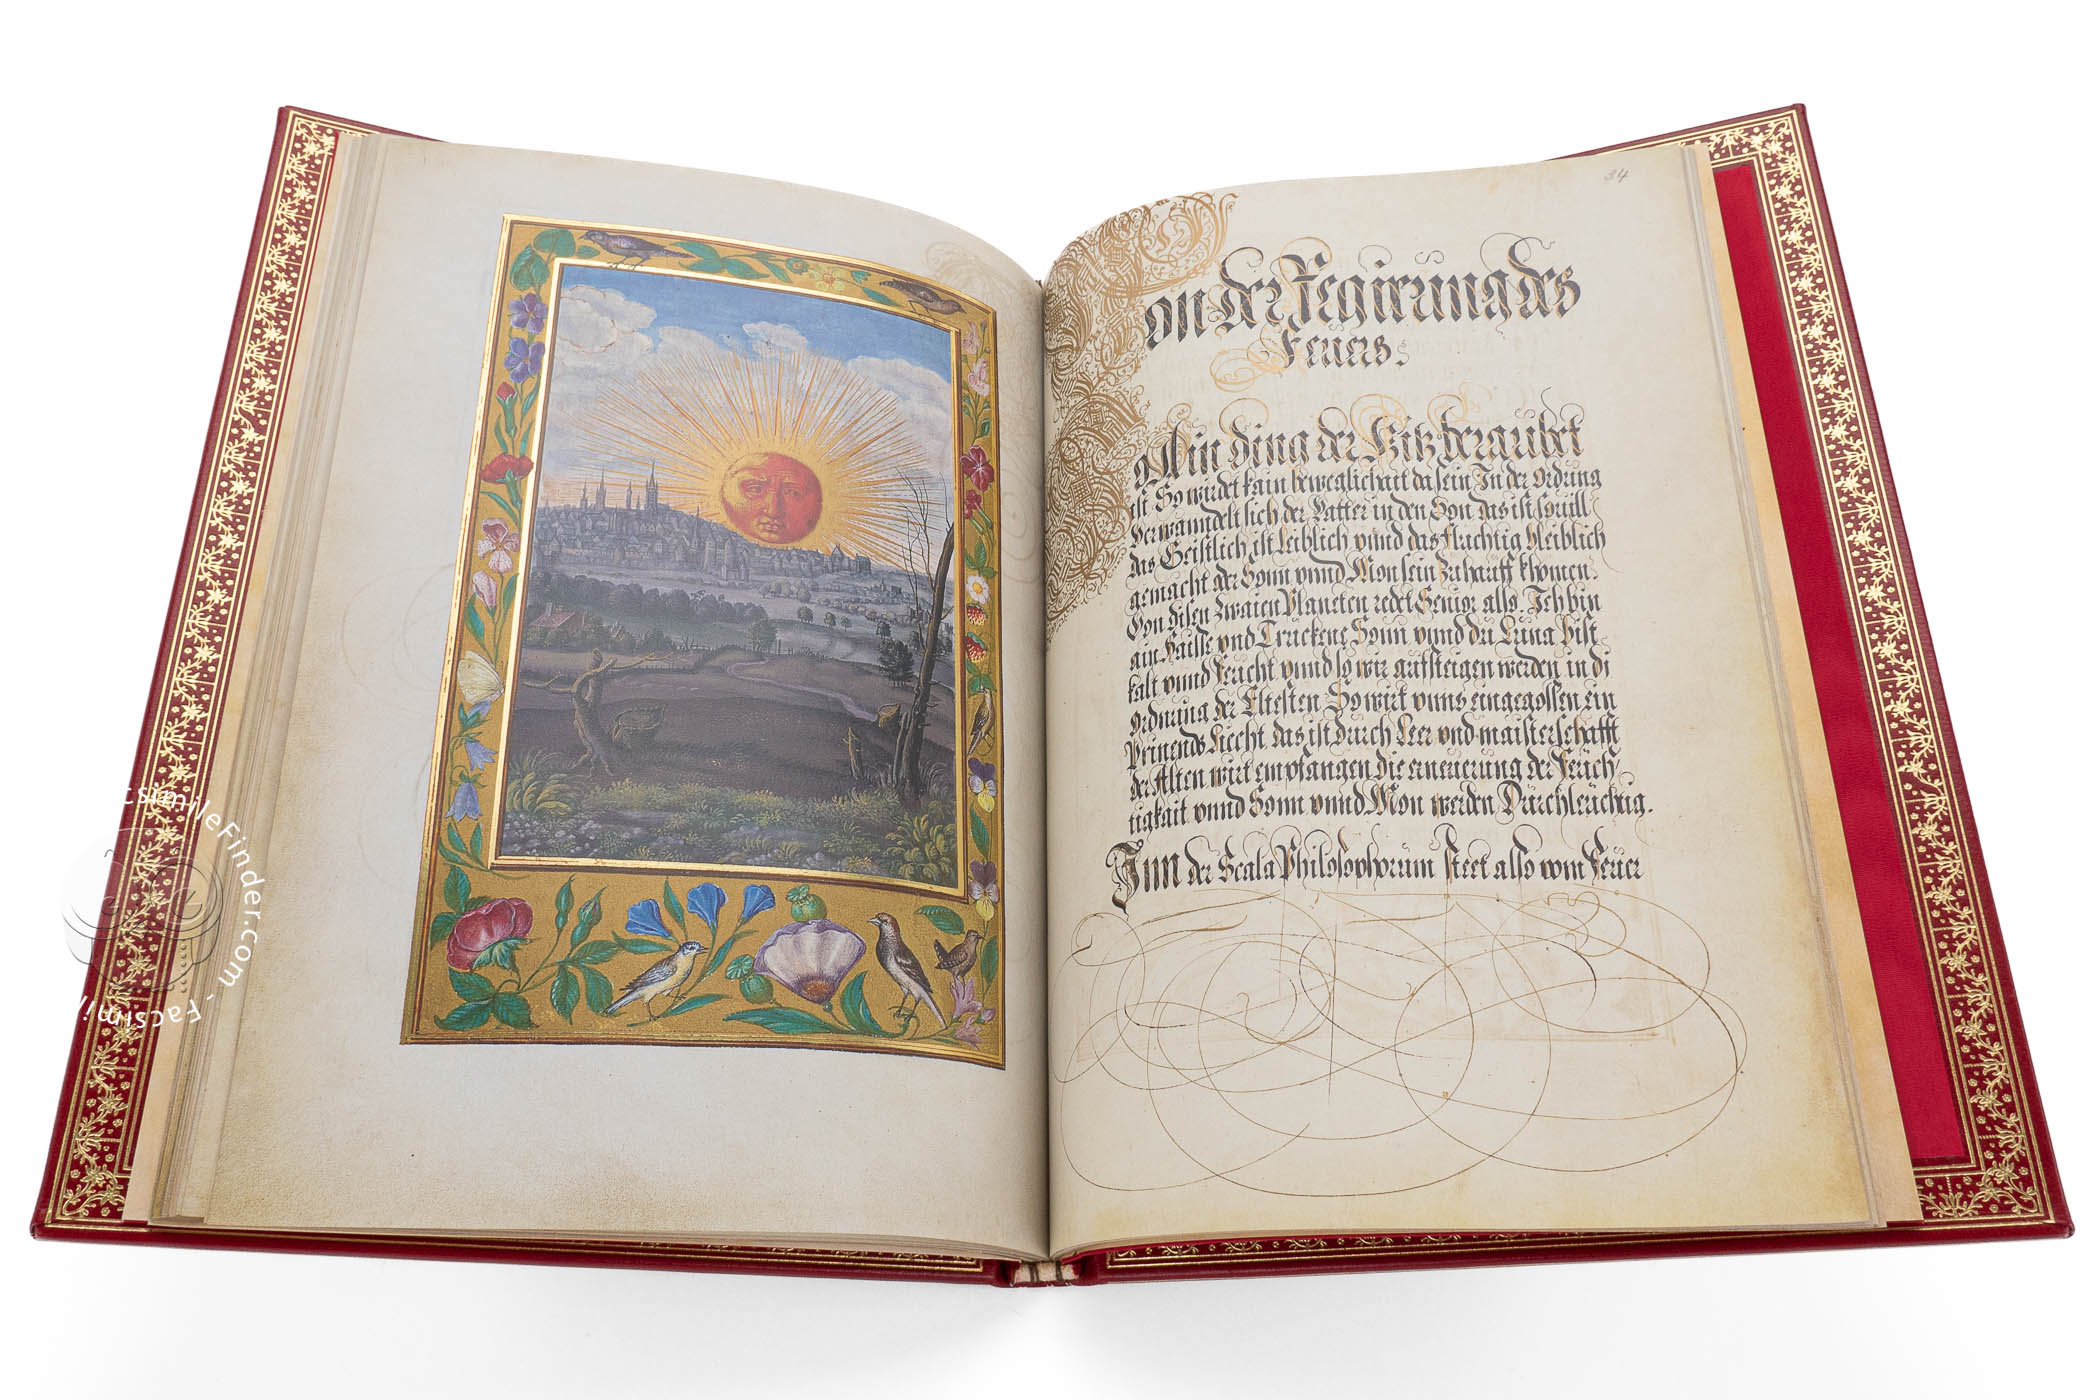 34
Von der Regierung des
Feüers.
Ain ding der Hitz beraübet
ist So würdet kain beweglichait da sein In der Ordüng
Verwanndelt sich der Vatter in den Son das ist souill
das Geistlich ist Leiblich vnnd das flüchtig bleiblich
gemacht oder Sonn vnnd Mon sein Zu hauff khomen.
Von disen Zwaien Planeten redet Senior also. Ich bin
ain Haisse vnd Trückene Sonn vnnd du Lüna bist
kalt vnnd Feücht vnnd so wir aufsteigen werden in di
ordnung der Eltesten So wirt vnns eingegossen ein
Prinends Liecht das ist dürch Leer vnd maisterschafft
der Alten wirt empfangen die erneuerung der Feüch,
tigkait vnnd Sonn vnnd Mon werden Dürchleüchtig.
Inn der Scala Philosophorum steet also vom Feüer
FacsimileFinder.com - Facsimil